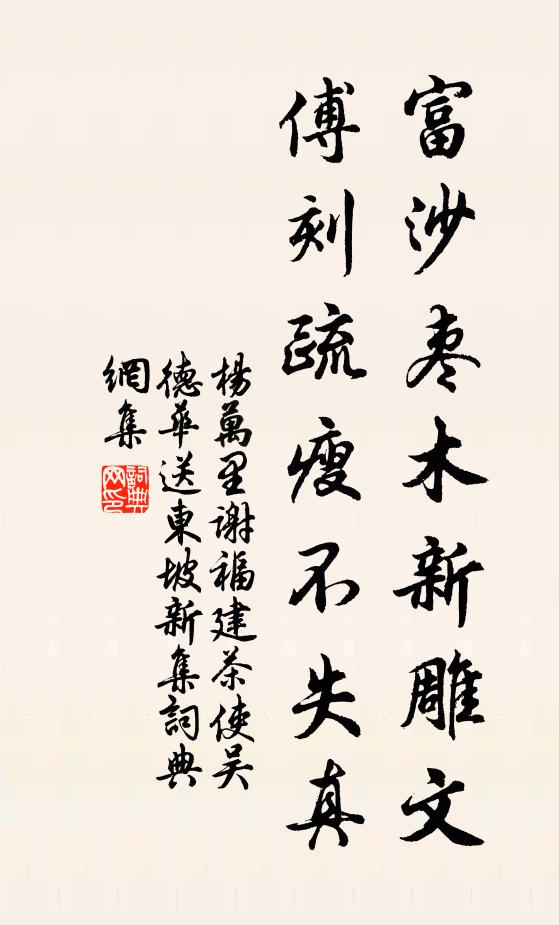 富沙枣木新雕文
傅刻疏瘦不失真
楊萬里謝福建茶使吴
德华送東坡新集詞典
網集
詞典網印